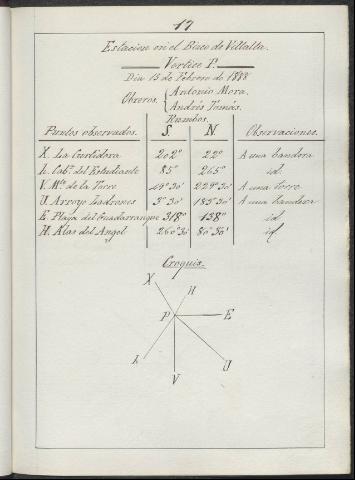 17
Estacion en el Risco de Villalta.
Vertice P.
Dia 15 de Febrero de 1888
Obreros. { Antonio Mora.
Andrés Tomás.
Rumbos.
Puntos observados. S. N. Observaciones.
X. La Curtidora 202° 22° A una bandera
h. Cab.ª del Estudiante 85° 265° id.
V. M.te de la Torre 49° 30' 229° 30' A una Torre
U. Arroyo Ladrones 3° 30' 183° 30' A una bandera
E. Playa del Guadarranque 318° 138° id
H. Alas del Angel 260° 30' 80° 30' id
Croquis.
X
H
P E
h
U
V